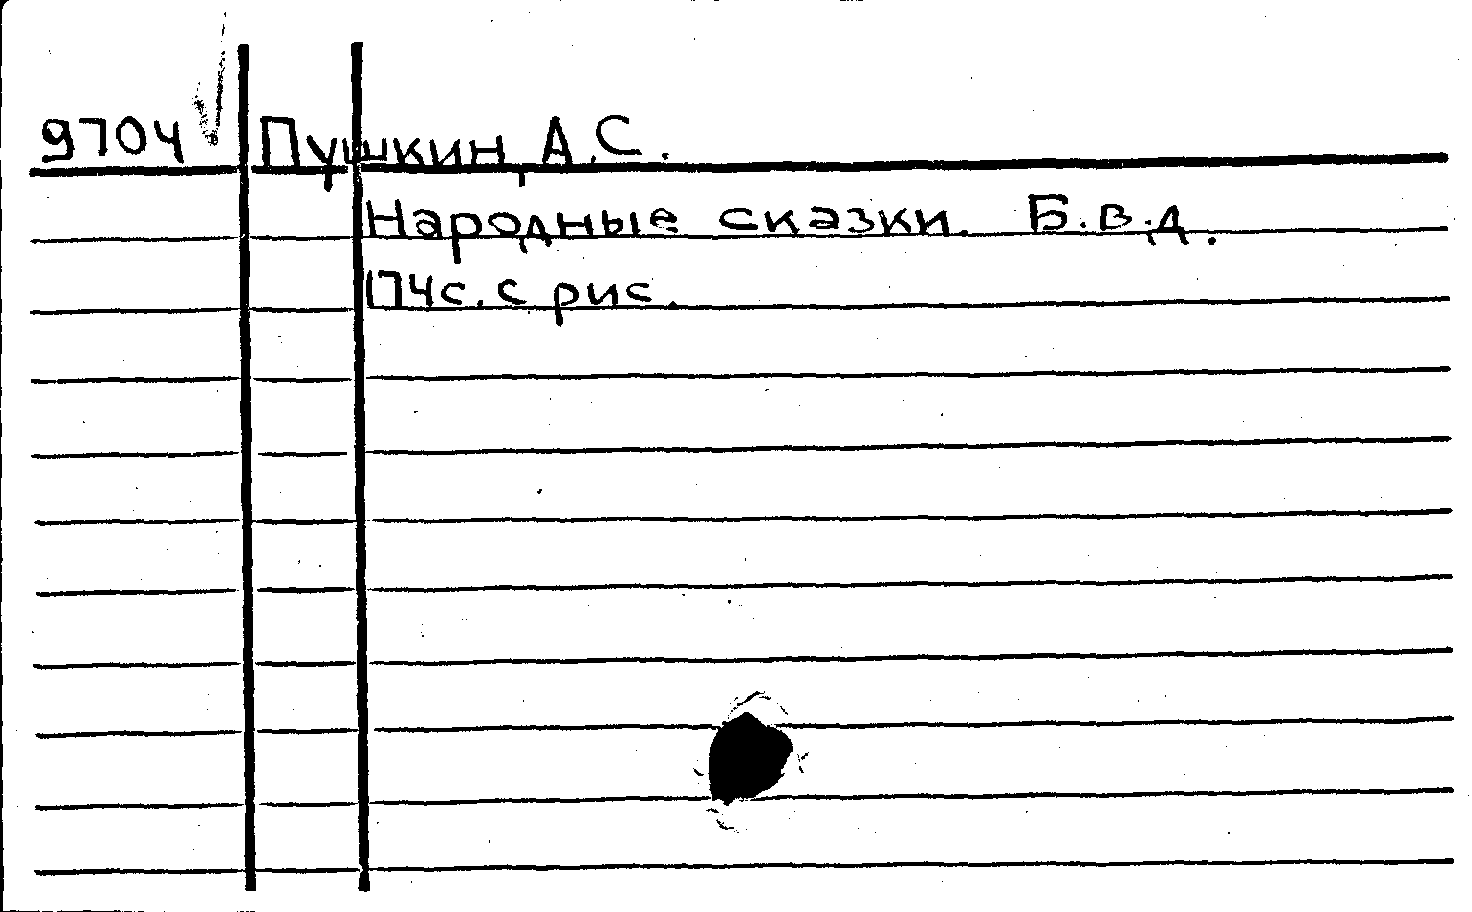 9704 Пушкин, А.С.
Народные сказки. Б.в.д.
174с. с рис.